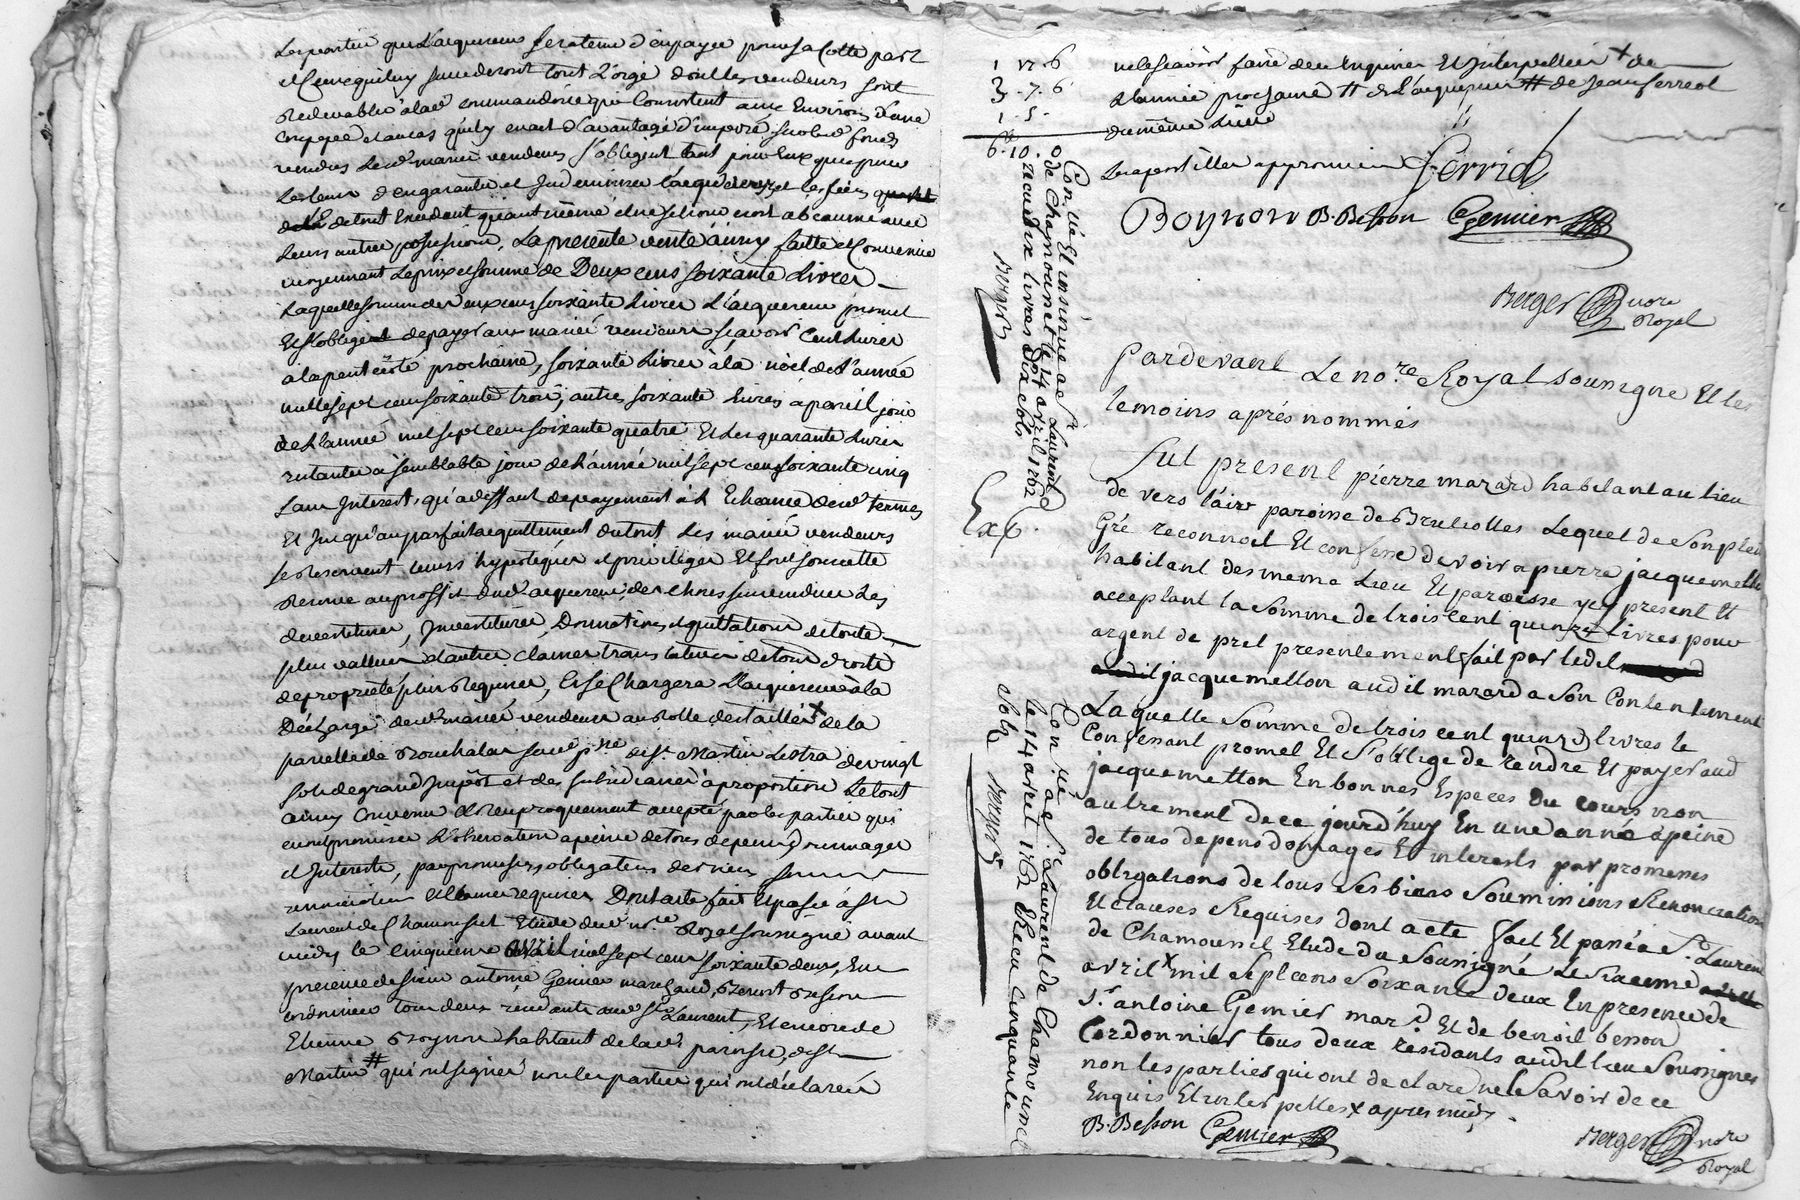 Les parties que l'acquereur sera tenu d'en payer pour sa cotte part
sont
redevable a lad commanderie
vendus Lesd mariés vendeurs s'obligent tant pour eux que pour
Les leurs d'en garantir et
de L'E
Leurs autres possessions, La presente vente ainsy faitte et Convenue
moyennant Le prix et somme de Deux cens soixante Livres
Laquelle somme de deux cens soixante Livres L'acquereur promet
Et s'oblige de payer aux mariés vendeurs scavoir Cent Livres
a la pentecôte prochaine, soixante Livres à la noël de L'année
mille sept cent soixante trois, autres soixante Livres a pareil jour
de L'année mil sept cens soixante quatre Et Les quarante Livres
restantes a semblable jour de L'année mil sept cens soixante cinq
sans Interest, qu'a deffaut de payement à L'Echeance desd termes
Et Jusqu'au parfait acquittement du tout Les mariés vendeurs
se reservent leurs hypoteques et privileges Et
au proffit dud acquereur des choses sus vendues Les
devestitures, Investitures, Donnations et quittations de toute
plus vallue et autres clauses translatives de tous droits
de proprieté plus Requises, Et se Chargera L'acquereur à la
Décharge desd mariés vendeurs au Rolle des Tailles x de la
parcelle de st Martin Lestra de vingt
sols de grand Impôt et des subsidiaires a proportion Le tout
ainsy Convenu et reciproquement accepté par les parties qui
ont promis L'observation a peine de tous depens, dommages
et Interests, par promesses, obligations de biens
renonciations et clauses requises Dont acte fait et passé à St
Laurent de Chamousset Etude dud no.re Royal soussigné avant
midy le cinquieme avril mil sept cens soixante deux, En
presence de sieur antoine Genier marchand, Benoit Besson
cordonnier tous deux residants aud St Laurent, Et encore de
Etienne Boynon habitant de lad parroisse de St
Martin # qui ont signés non les parties qui ont déclarés
ne le scavoir faire de ce enquises Et Interpellées x de
L'année prochaine # de Jean ferreol
du même Lieu
Les apostilles approuvées
ferrid
Boynon B. Besson Genier
Berger nore
Royal
1 17 6
3 . 7 . 6
1 . 5 .
6 . 10 . 0
Con.lé Et insinué a St Laurent
de Chamousset le 14 avril 1762
Recu six Livres dix sols
Berger
Exp.
Pardevant Le no.re Royal soussigné Et les
temoins aprés nommés
Fut present pierre mazard habitant au lieu
de vers l'air paroisse de Brulliolles Lequel de son plein
Gré reconnoit Et confesse devoir a pierre jacquemetton
habitant des meme Lieu Et paroisse icy present Et
acceptant la Somme de trois cent quinze Livres pour
argent de pret presentement fait par ledit
jacquemetton audit mazard a son Contentement
Laquelle Somme de trois cent quinze livres le
Confessant promet Et S'oblige de rendre Et payer aud
jacquemetton En bonnes Especes du cours non
autrement de ce jourd'huy En une année a peine
de tous depens domages Et interests par promesses
obligations de tous Ses biens Soumissions Renonciations
Et clauses Requises dont acte fait Et passé a St. Laurent
de Chamousset Etude du Soussigné Le
avril x mil Sept cens Soixante deux En presence de
Sr antoine Genier mar.d Et de benoit besson
Cordonnier tous deux residants audit lieu Soussignés
non les parties qui ont declaré ne le Savoir de ce
Enquis Et interpellés x apres midy.
B. Besson Genier
Berger nore
Royal
Con.lé a St. Laurent de Chamousset
le 14 avril 1762 Recu cinquante
sols Berger